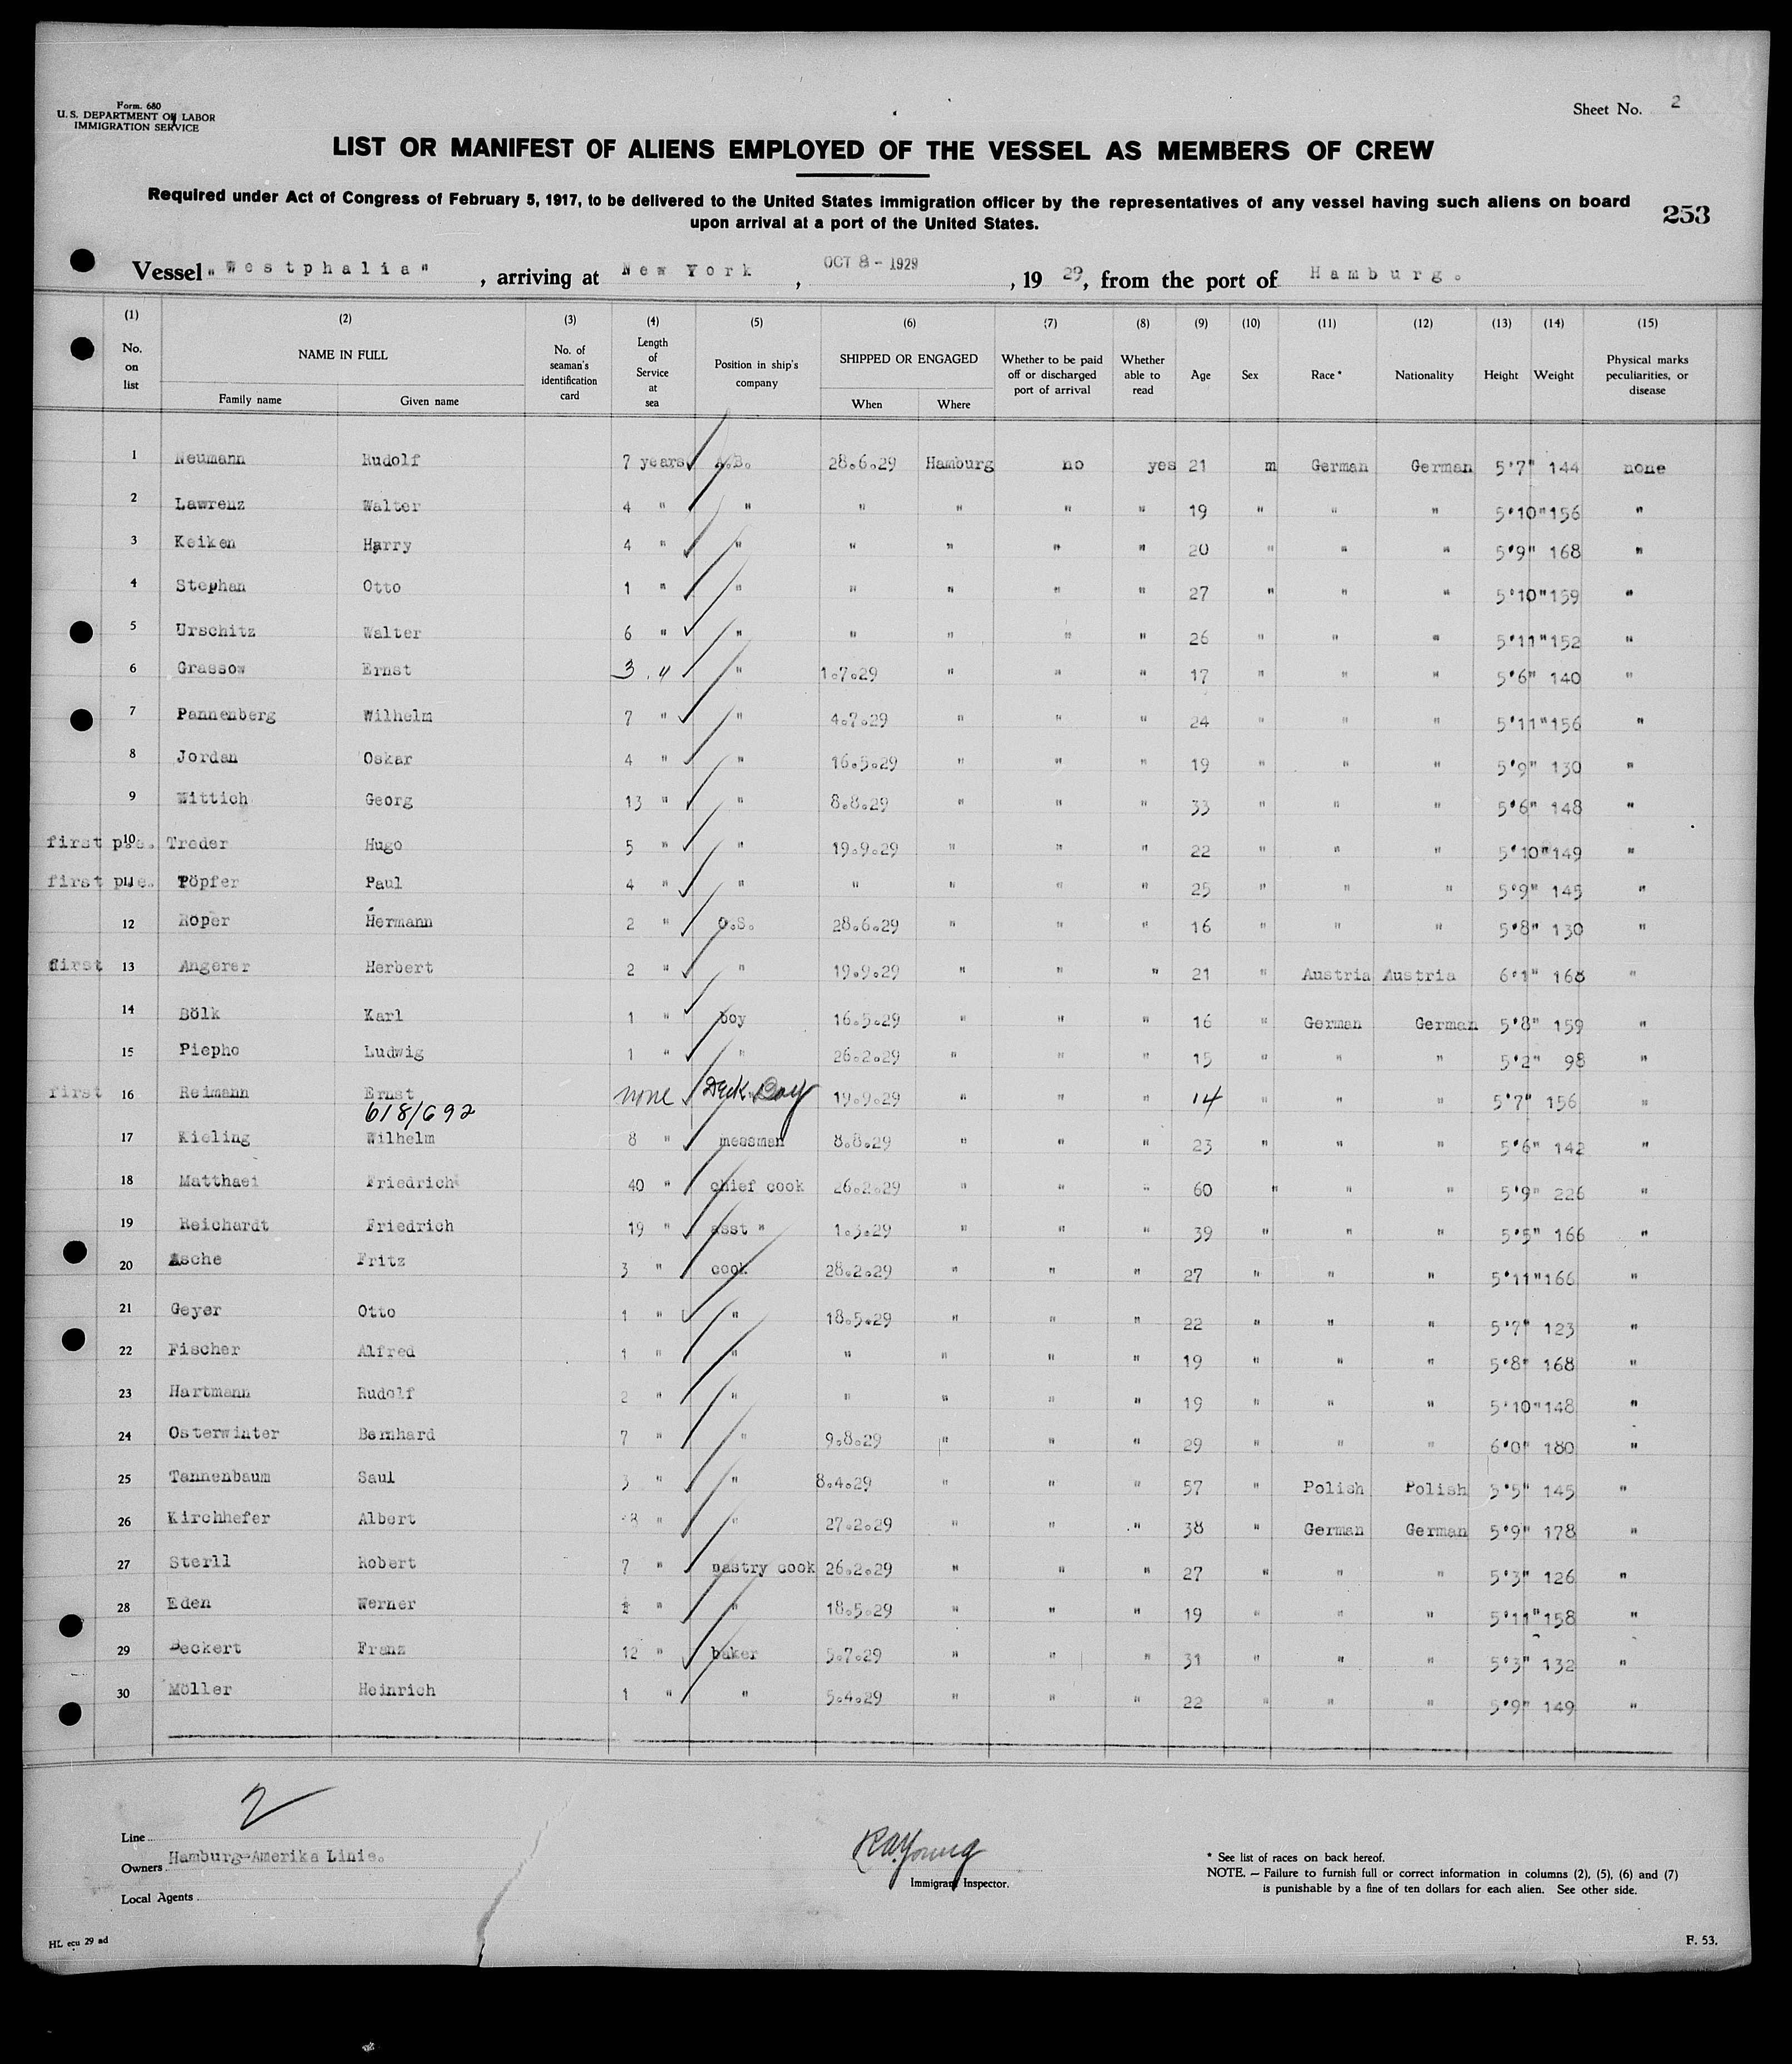 Form. 680
U. S. DEPARTMENT OF LABOR
IMMIGRATION SERVICE
Sheet No. 2
LIST OR MANIFEST OF ALIENS EMPLOYED OF THE VESSEL AS MEMBERS OF CREW
Required under Act of Congress of February 5, 1917, to be delivered to the United States immigration officer by the representatives of any vessel having such aliens on board
upon arrival at a port of the United States.
253
Vessel "Westphalia", arriving at New York, OCT 8 - 1929, 19 29, from the port of Hamburg.
(1) (2) (3) (4) (5) (6) (7) (8) (9) (10) (11) (12) (13) (14) (15)
No. on list NAME IN FULL Family name Given name No. of seaman's identification card Length of Service at sea Position in ship's company SHIPPED OR ENGAGED When Where Whether to be paid off or discharged port of arrival Whether able to read Age Sex Race* Nationality Height Weight Physical marks peculiarities, or disease
1 Neumann Rudolf 7 years A.B. 28.6.29 Hamburg no yes 21 m German German 5'7" 144 none
2 Lawrenz Walter 4 " " " " " " 19 " " " 5'10" 156 "
3 Keiken Harry 4 " " " " " " 20 " " " 5'9" 168 "
4 Stephan Otto 1 " " " " " " 27 " " " 5'10" 159 "
5 Urschitz Walter 6 " " " " " " 26 " " " 5'11" 152 "
6 Grassow Ernst 3 " " 1.7.29 " " " 17 " " " 5'6" 140 "
7 Pannenberg Wilhelm 7 " " 4.7.29 " " " 24 " " " 5'11" 156 "
8 Jordan Oskar 4 " " 16.5.29 " " " 19 " " " 5'9" 130 "
9 Wittich Georg 13 " " 8.8.29 " " " 33 " " " 5'6" 148 "
first 10 Treder Hugo 5 " " 19.9.29 " " " 22 " " " 5'10" 149 "
first 11 Töpfer Paul 4 " " " " " " 25 " " " 5'9" 145 "
12 Roper Hermann 2 " O.S. 28.6.29 " " " 16 " " " 5'8" 130 "
first 13 Angerer Herbert 2 " " 19.9.29 " " " 21 " Austria Austria 6'1" 168 "
14 Bölk Karl 1 " boy 16.5.29 " " " 16 " German German 5'8" 159 "
15 Piepho Ludwig 1 " " 26.2.29 " " " 15 " " " 5'2" 98 "
first 16 Reimann Ernst none Deck Boy 19.9.29 " " " 14 " " " 5'7" 156 "
618/692
17 Kieling Wilhelm 8 " messman 8.8.29 " " " 23 " " " 5'6" 142 "
18 Matthaei Friedrich 40 " chief cook 26.2.29 " " " 60 " " " 5'9" 226 "
19 Reichardt Friedrich 19 " asst " 1.3.29 " " " 39 " " " 5'5" 166 "
20 Asche Fritz 3 " cook 28.2.29 " " " 27 " " " 5'11" 166 "
21 Geyer Otto 1 " " 18.5.29 " " " 22 " " " 5'7" 123 "
22 Fischer Alfred 1 " " " " " " 19 " " " 5'8" 168 "
23 Hartmann Rudolf 2 " " " " " " 19 " " " 5'10" 148 "
24 Osterwinter Bernhard 7 " " 9.8.29 " " " 29 " " " 6'0" 180 "
25 Tannenbaum Saul 3 " " 8.4.29 " " " 57 " Polish Polish 5'5" 145 "
26 Kirchhefer Albert 8 " " 27.2.29 " " " 38 " German German 5'9" 178 "
27 Sterll Robert 7 " pastry cook 26.2.29 " " " 27 " " " 5'3" 126 "
28 Eden Werner " " 18.5.29 " " " 19 " " " 5'11" 158 "
29 Deckert Franz 12 " baker 5.7.29 " " " 31 " " " 5'3" 132 "
30 Möller Heinrich 1 " " 5.4.29 " " " 22 " " " 5'9" 149 "
2
Line
Owners Hamburg-Amerika Linie.
Local Agents
R.A. Young
Immigrant Inspector.
* See list of races on back hereof.
NOTE. — Failure to furnish full or correct information in columns (2), (5), (6) and (7)
is punishable by a fine of ten dollars for each alien. See other side.
HL ecu 29 ad
F. 53.